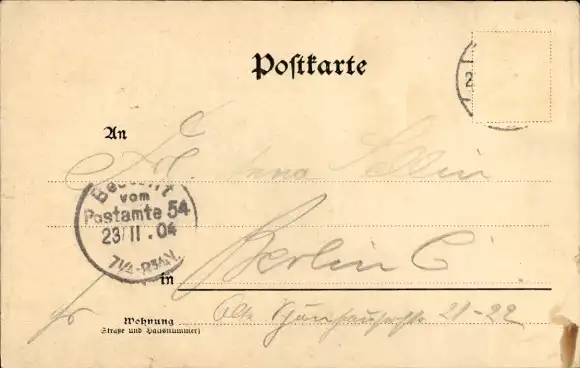 Postkarte
2
An
Frl. Anna Sellin
Bestellt
vom
Postamte 54
23/11.04
7¼-8¾N.
in Berlin C
Wohnung
(Straße und Hausnummer)
Alte Schönhauserstr. 21-22